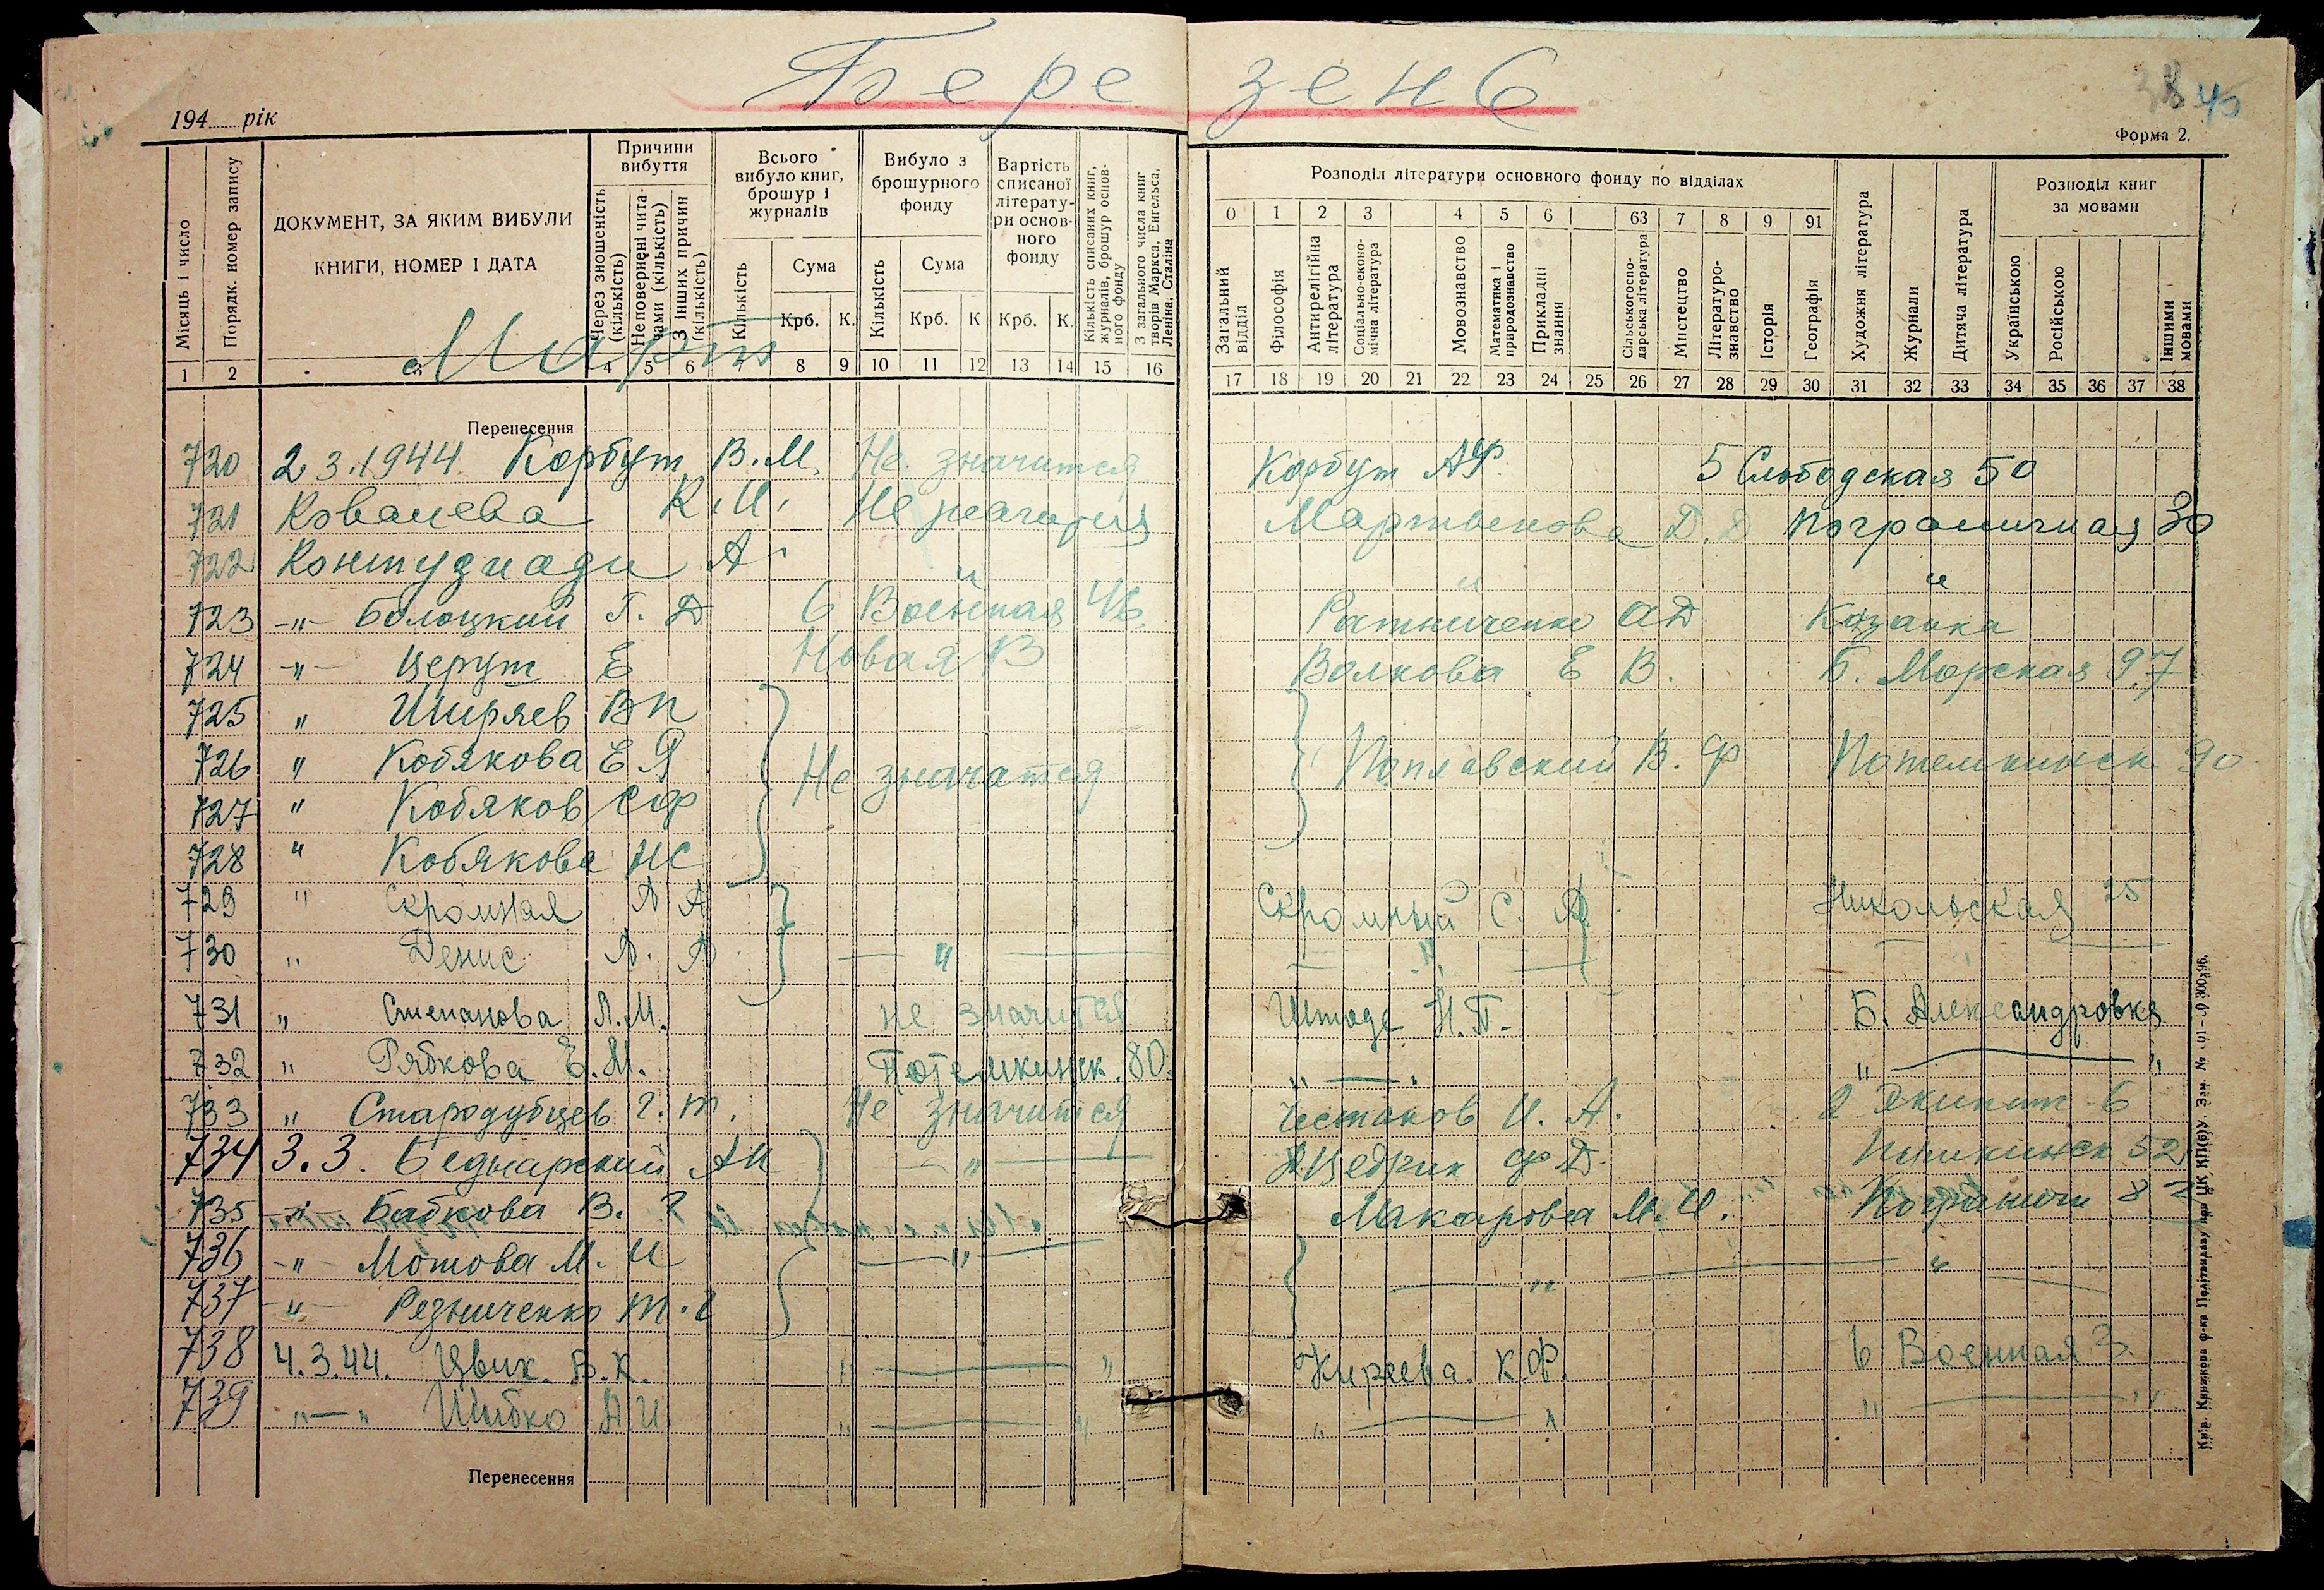 Бере зень
38 45
194 рік
Форма 2.
Місяць і число
Порядк. номер запису
ДОКУМЕНТ, ЗА ЯКИМ ВИБУЛИ КНИГИ, НОМЕР І ДАТА
Причини вибуття
Через зношеність (кількість)
Неповернені читачами (кількість)
З інших причин (кількість)
Всього вибуло книг, брошур і журналів
Кількість
Сума
Крб. К.
Вибуло з брошурного фонду
Кількість
Сума
Крб. К
Вартість списаної літератури основного фонду
Крб. К.
Кількість списаних книг, журналів, брошур основного фонду
З загального числа книг творів Маркса, Енгельса, Леніна, Сталіна
Розподіл літератури основного фонду по відділах
0 1 2 3 4 5 6 63 7 8 9 91
Загальний відділ
Філософія
Антирелігійна література
Соціально-економічна література
Мовознавство
Математика і природознавство
Прикладні знання
Сільськогосподарська література
Мистецтво
Літературознавство
Історія
Географія
Художня література
Журнали
Дитяча література
Розподіл книг за мовами
Українською
Російською
Іншими мовами
Март
1 2 3 4 5 6 8 9 10 11 12 13 14 15 16
17 18 19 20 21 22 23 24 25 26 27 28 29 30 31 32 33 34 35 36 37 38
Перенесення
720 2 3.1944. Корбут В.М. Не значится Корбут АФ 5 Слободская 50
721 Ковалева К.И. Не значится Мартвенова Д. Д Пограничная 30
722 Контузиади А " " "
723 -"- Болоцкий Г. Д 6 Военная 46 Ратниченко АД Козанка
724 -"- Церут Е Новая 13 Волкова Е В. Б. Морская 97
725 " Ширяев ВП
726 " Кобякова Е Я Не значатся Поплавский В. Ф Потемкинск 90
727 " Кобяков СФ
728 " Кобякова НС
729 " Скромная А А Скромный С. А Никольская 25
730 " Денис А. А — " — — " —
731 " Степанова Л.М. не значится Штоде Н.П. Б. Александровка
732 " Рябкова Е.М. Потемкинск. 80. " — " " — "
733 " Стародубцев Г. Т. Не значится Честаков И. А. 2 Экипат 6
734 3.3. Беднарский АИ — " — Щедрик Ф Д. Пушкинск 52
735 -"- Бабкова В. Г Макарова М. И. Погранич 82
736 -"- Мотова М. И — " — — " — — " —
737 -"- Резниченко Т. Г
738 4.3.44. Цвик. В.К. " — " Киреева. К.Ф. 6 Военная 3
739 " — " Шибко А И " — " " — " " — "
Перенесення